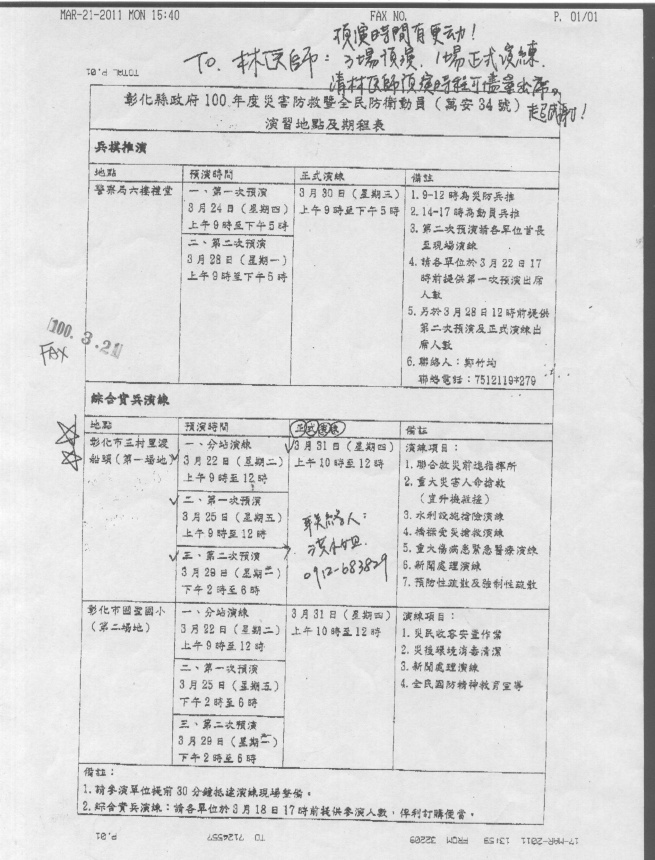 MAR-21-2011 MON 15:40 FAX NO. P. 01/01
預演時間有更动!
TO. 林医師: 3場預演. 1場正式演練.
請林医師預演時程可儘量出席,
起感謝!
TOTAL P.01
彰化縣政府100年度災害防救暨全民防衛動員(萬安34號)
演習地點及期程表
兵棋推演
地點 預演時間 正式演練 備註
警察局六樓禮堂
一、第一次預演
3月24日(星期四)
上午9時至下午5時
二、第二次預演
3月28日(星期一)
上午9時至下午5時
3月30日(星期三)
上午9時至下午5時
1.9-12時為災防兵推
2.14-17時為動員兵推
3.第二次預演請各單位首長
至現場演練
4.請各單位於3月22日17
時前提供第一次預演出席
人數
5.另於3月28日12時前提供
第二次預演及正式演練出
席人數
6.聯絡人:鄭竹均
聯絡電話:7512119*279
100. 3. 21
FAX
綜合實兵演練
地點 預演時間 正式演練 備註
彰化市三村里渡
船頭(第一場地)
一、分站演練
3月22日(星期二)
上午9時至12時
二、第一次預演
3月25日(星期五)
上午9時至12時
三、第二次預演
3月29日(星期二)
下午2時至6時
3月31日(星期四)
上午10時至12時
聯絡人:
0912-683829
演練項目:
1.聯合救災前進指揮所
2.重大災害人命搶救
(直升機救援)
3.水利設施搶險演練
4.橋樑受災搶救演練
5.重大傷病患緊急醫療演練
6.新聞處理演練
7.預防性疏散及強制性疏散
彰化市國聖國小
(第二場地)
一、分站演練
3月22日(星期二)
上午9時至12時
二、第一次預演
3月25日(星期五)
下午2時至6時
三、第二次預演
3月29日(星期二)
下午2時至6時
3月31日(星期四)
上午10時至12時
演練項目:
1.災民收容安置作業
2.災後環境消毒清潔
3.新聞處理演練
4.全民國防精神教育宣導
備註:
1.請參演單位提前30分鐘抵達演練現場整備。
2.綜合實兵演練:請各單位於3月18日17時前提供參演人數,俾利訂購便當。
17-MAR-2011 13:59 FROM 32209 TO 7124557 P.01